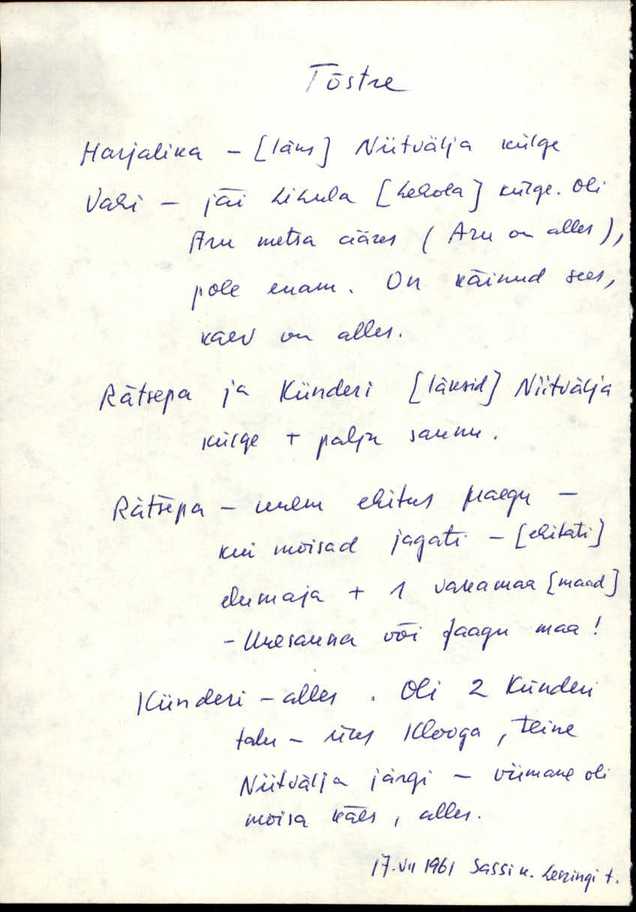 Tõstre
Harjalika – [läks] Niitvälja külge
Vahi – jäi Lihula [Lehola] külge. Oli
Aru metsa ääres (Aru on alles),
pole enam. On käinud sees,
kaev on alles.
Rätsepa ja Künderi [läksid] Niitvälja
külge + palju saunu.
Rätsepa – uuem ehitus praegu –
kui mõisad jagati – [ehitati]
elumaja + 1 vakamaa [maad]
– Uuesauna või Jaagu maa!
Künderi – alles. Oli 2 Künderi
talu – üks Klooga, teine
Niitvälja järgi – viimane oli
mõisa käes, alles.
17.VII 1961 Sassi k. t.